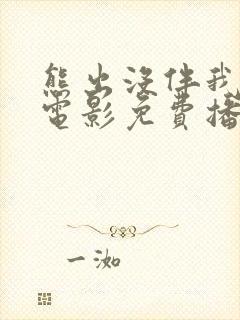 熊出没伴我
电影免費播
一洳